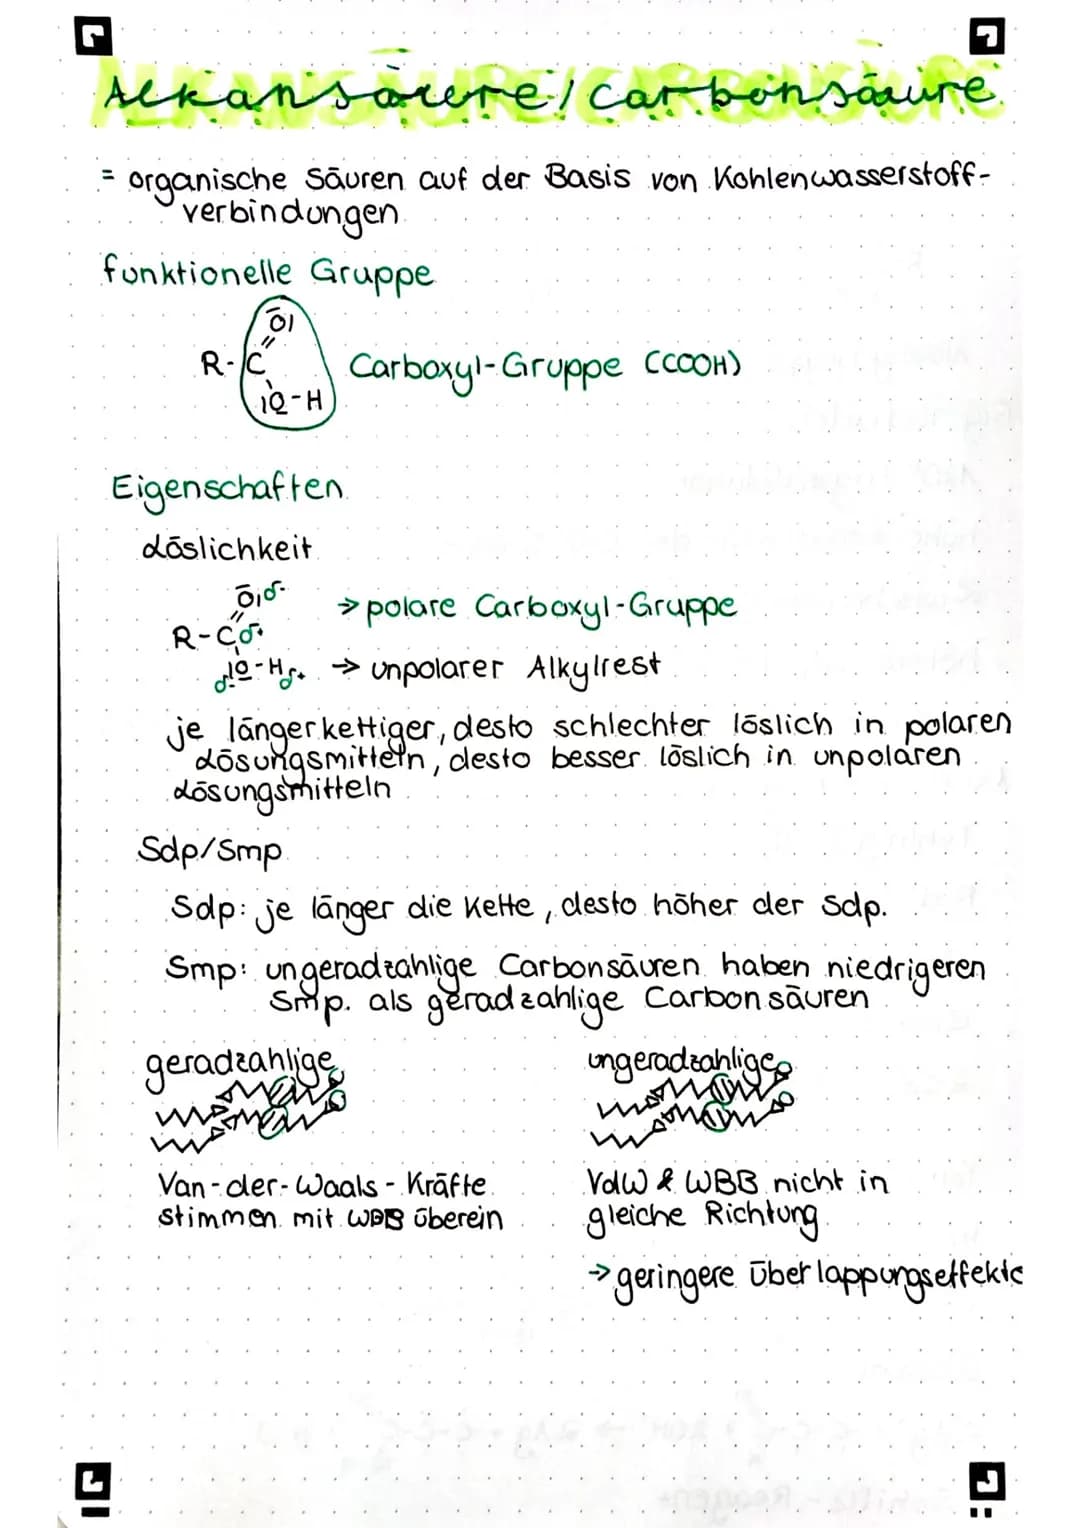 Alkansäure/Carbonsäure
= organische Säuren auf der Basis von Kohlenwasserstoff-
verbindungen
funktionelle Gruppe
O|
R-C
|O-H
Carboxyl-Gruppe (COOH)
Eigenschaften
Löslichkeit
O|δ-
R-Cδ+
δ-|O-Hδ+
→ polare Carboxyl-Gruppe
→ unpolarer Alkylrest
je längerkettiger, desto schlechter löslich in polaren
Lösungsmitteln, desto besser löslich in unpolaren
Lösungsmitteln
Sdp/Smp
Sdp: je länger die Kette, desto höher der Sdp.
Smp: ungeradzahlige Carbonsäuren haben niedrigeren
Smp. als geradzahlige Carbonsäuren
geradzahlige
ungeradzahlige
Van-der-Waals-Kräfte
stimmen mit WBB überein
VdW & WBB nicht in
gleiche Richtung
→ geringere Überlappungseffekte